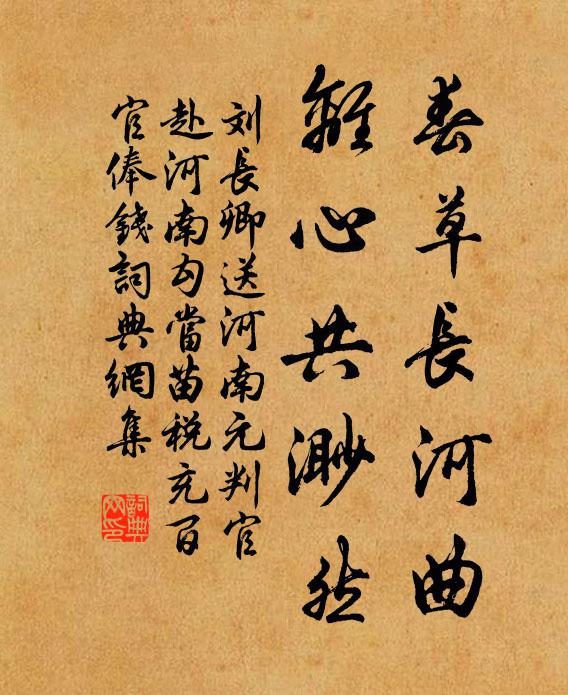 春草長河曲
離心共渺然
刘長卿送河南元判官
赴河南勾當苗税充百
官俸錢詞典網集
詞典網印